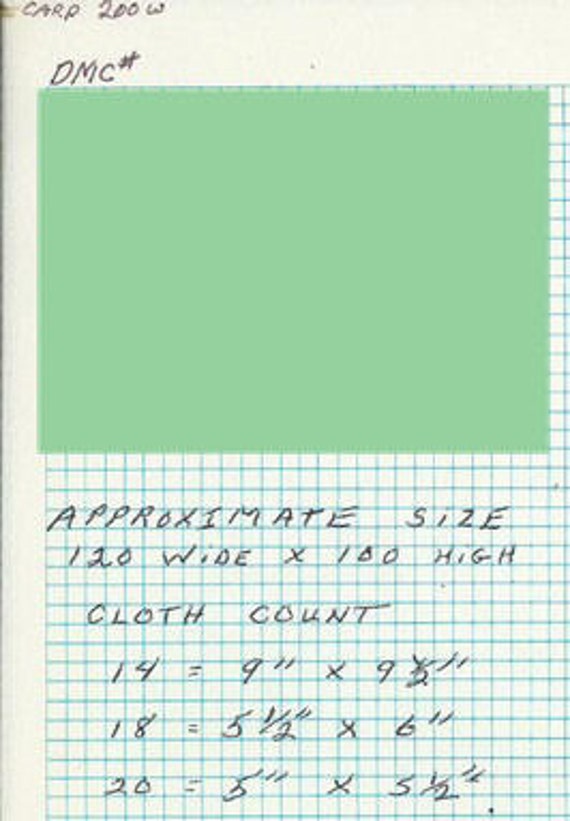 CARD 200W
DMC#
APPROXIMATE SIZE
120 WIDE X 100 HIGH
CLOTH COUNT
14 = 9" X 9 1/2"
18 = 5 1/2" X 6"
20 = 5" X 5 1/2"